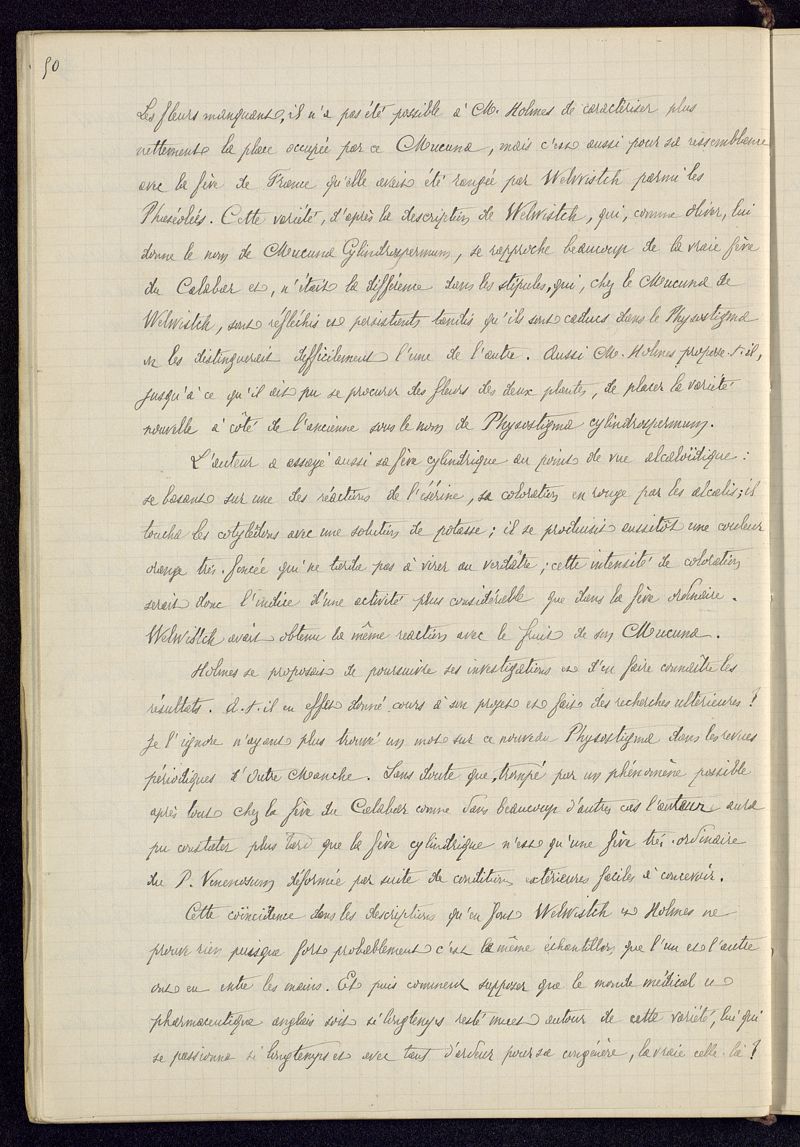 50
Les fleurs manquant, il n'a pas été possible à M. Holmes de caractériser plus
nettement la place occupée par ce Mucuna, mais c'est aussi pour sa ressemblance
avec la fève de France qu'elle avait été rangée par Welwistch parmi les
Phaséolées. Cette variété, d'après la description de Welwistch, qui, comme Oliver, lui
donne le nom de Mucuna Cylindrospermum, se rapproche beaucoup de la vraie fève
du Calabar et, n'était la différence dans les stipules, qui, chez le Mucuna de
Welwistch, sont réfléchis et persistants tandis qu'ils sont caducs dans le Physostigma
on les distinguerait difficilement l'une de l'autre. Aussi M. Holmes propose-t-il,
jusqu'à ce qu'il ait pu se procurer des fleurs des deux plantes, de placer la variété
nouvelle à côté de l'ancienne sous le nom de Physostigma cylindrospermum.
L'auteur a essayé aussi sa fève cylindrique au point de vue alcaloïdique :
se basant sur une des réactions de l'ésérine, sa coloration en rouge par les alcalis; il
toucha les cotylédons avec une solution de potasse ; il se produisit aussitôt une couleur
orange très foncée qui ne tarda pas à virer au verdâtre ; cette intensité de coloration
serait donc l'indice d'une activité plus considérable que dans la fève ordinaire.
Welwistch avait obtenu la même réaction avec le fruit de son Mucuna.
Holmes se proposait de poursuivre ses investigations et d'en faire connaître les
résultats. A-t-il en effet donné cours à son projet et fait des recherches ultérieures ?
Je l'ignore n'ayant plus trouvé un mot sur ce nouveau Physostigma dans les revues
périodiques d'Outre Manche. Sans doute que, trompé par un phénomène possible
après tout chez la fève du Calabar comme dans beaucoup d'autres cas l'auteur aura
pu constater plus tard que la fève cylindrique n'est qu'une fève très ordinaire
du P. Venenosum déformée par suite de conditions extérieures faciles à concevoir.
Cette coïncidence dans les descriptions qu'en font Welwistch et Holmes ne
prouve rien puisque fort probablement c'est le même échantillon que l'un et l'autre
ont eu entre les mains. Et puis comment supposer que le monde médical et
pharmaceutique anglais soit si longtemps resté muet autour de cette variété, lui qui
se passionna si longtemps et avec tant d'ardeur pour sa congénère, la vraie celle-là ?